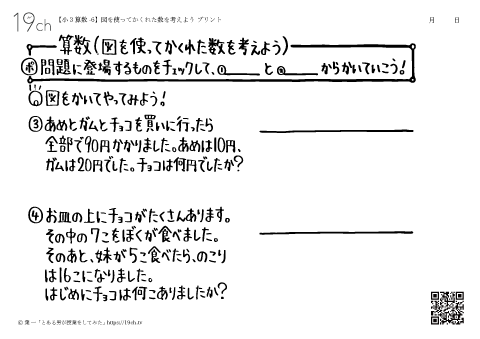 19ch 【小3算数-6】図を使ってかくれた数を考えよう プリント 月 日
算数(図を使ってかくれた数を考えよう)
ポ 問題に登場するものをチェックして、①____と②____からかいていこう!
図をかいてやってみよう!
③あめとガムとチョコを買いに行ったら
全部で90円かかりました。あめは10円、
ガムは20円でした。チョコは何円でしたか?
④お皿の上にチョコがたくさんあります。
その中の7こをぼくが食べました。
そのあと、妹が5こ食べたら、のこり
は16こになりました。
はじめにチョコは何こありましたか?
© 葉一「とある男が授業をしてみた」https://19ch.tv